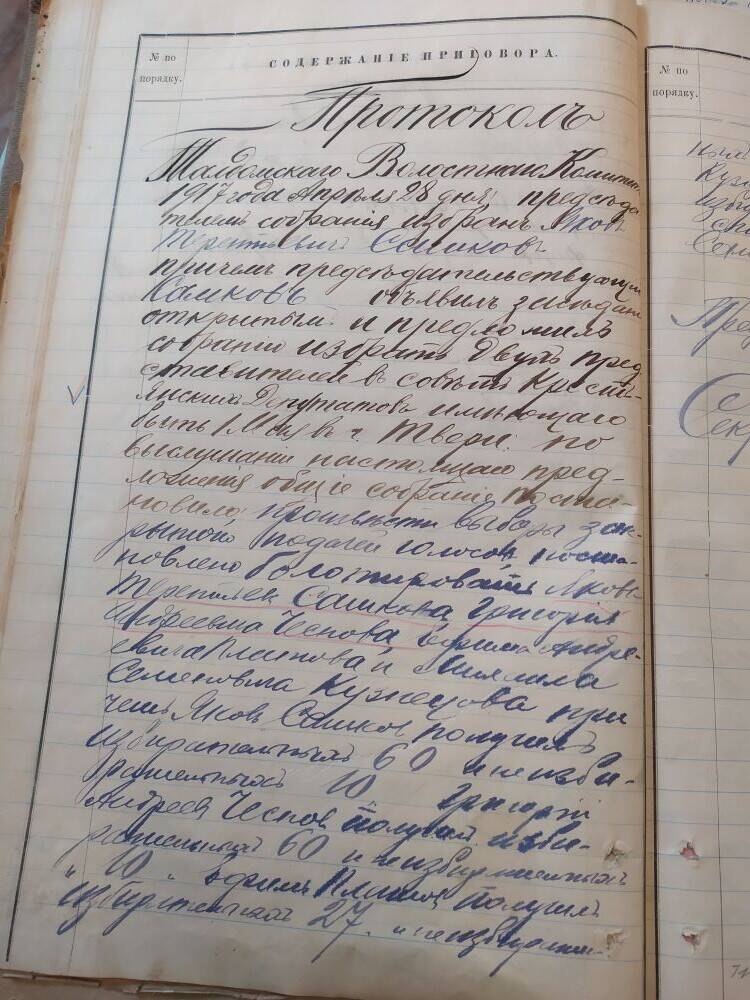 № по порядку.
СОДЕРЖАНІЕ ПРИГОВОРА.
Протоколъ
Талдомскаго Волостнаго Комитет
1917 года Апреля 28 дня, предсѣда
телемъ собранія избранъ Яковъ
Терентьевичъ Сашковъ
причемъ предсѣдательствующи
Сашковъ объявилъ заседание
открытымъ и предложилъ
собранію избрать двухъ пред
ставителей въ совѣтъ Кресть-
янскихъ Депутатовъ имеющаго
быть 1 Мая въ г. Твери. по
выслушании настоящаго пред-
ложенія общіе собраніе поста
новило: произвѣсти выборы зак-
рытой подачей голосовъ, поста-
новлено болотировать Якова
Терентьев Сашкова, Григорія
Андреевича Чеснова, Ефима Андре-
евича Платова и Михаила
Семеновича Кузнецова при
чемъ Яковъ Сашков получилъ
избирательныхъ 60 и неизби-
рательныхъ 10 Григорій
Андреев Чеснов получил изби-
рательныхъ 60 и неизбирательныхъ
" 10 " Ефимъ Платов получилъ
избирательныхъ 27. и неизбирател-
№ по порядку.
Кузн
Пред
Се
Секр